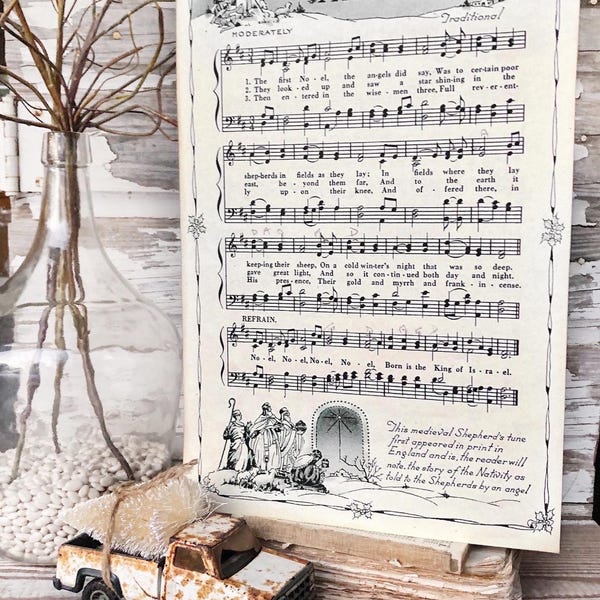 Traditional
MODERATELY
1. The first No - el, the an-gels did say, Was to cer-tain poor
2. They look - ed up and saw a star shin-ing in the
3. Then en - tered in the wise - men three, Full rev - er - ent-
shep-herds in fields as they lay; In fields where they lay
east, be - yond them far, And to the earth it
ly up - on their knee, And of - fered there, in
keep-ing their sheep, On a cold win-ter's night that was so deep.
gave great light, And so it con-tin-ued both day and night.
His pres-ence, Their gold and myrrh and frank - in - cense.
REFRAIN.
No - el, No-el, No-el, No - el, Born is the King of Is - ra - el.
This medieval Shepherd's tune
first appeared in print in
England and is, the reader will
note, the story of the Nativity as
told to the Shepherds by an angel